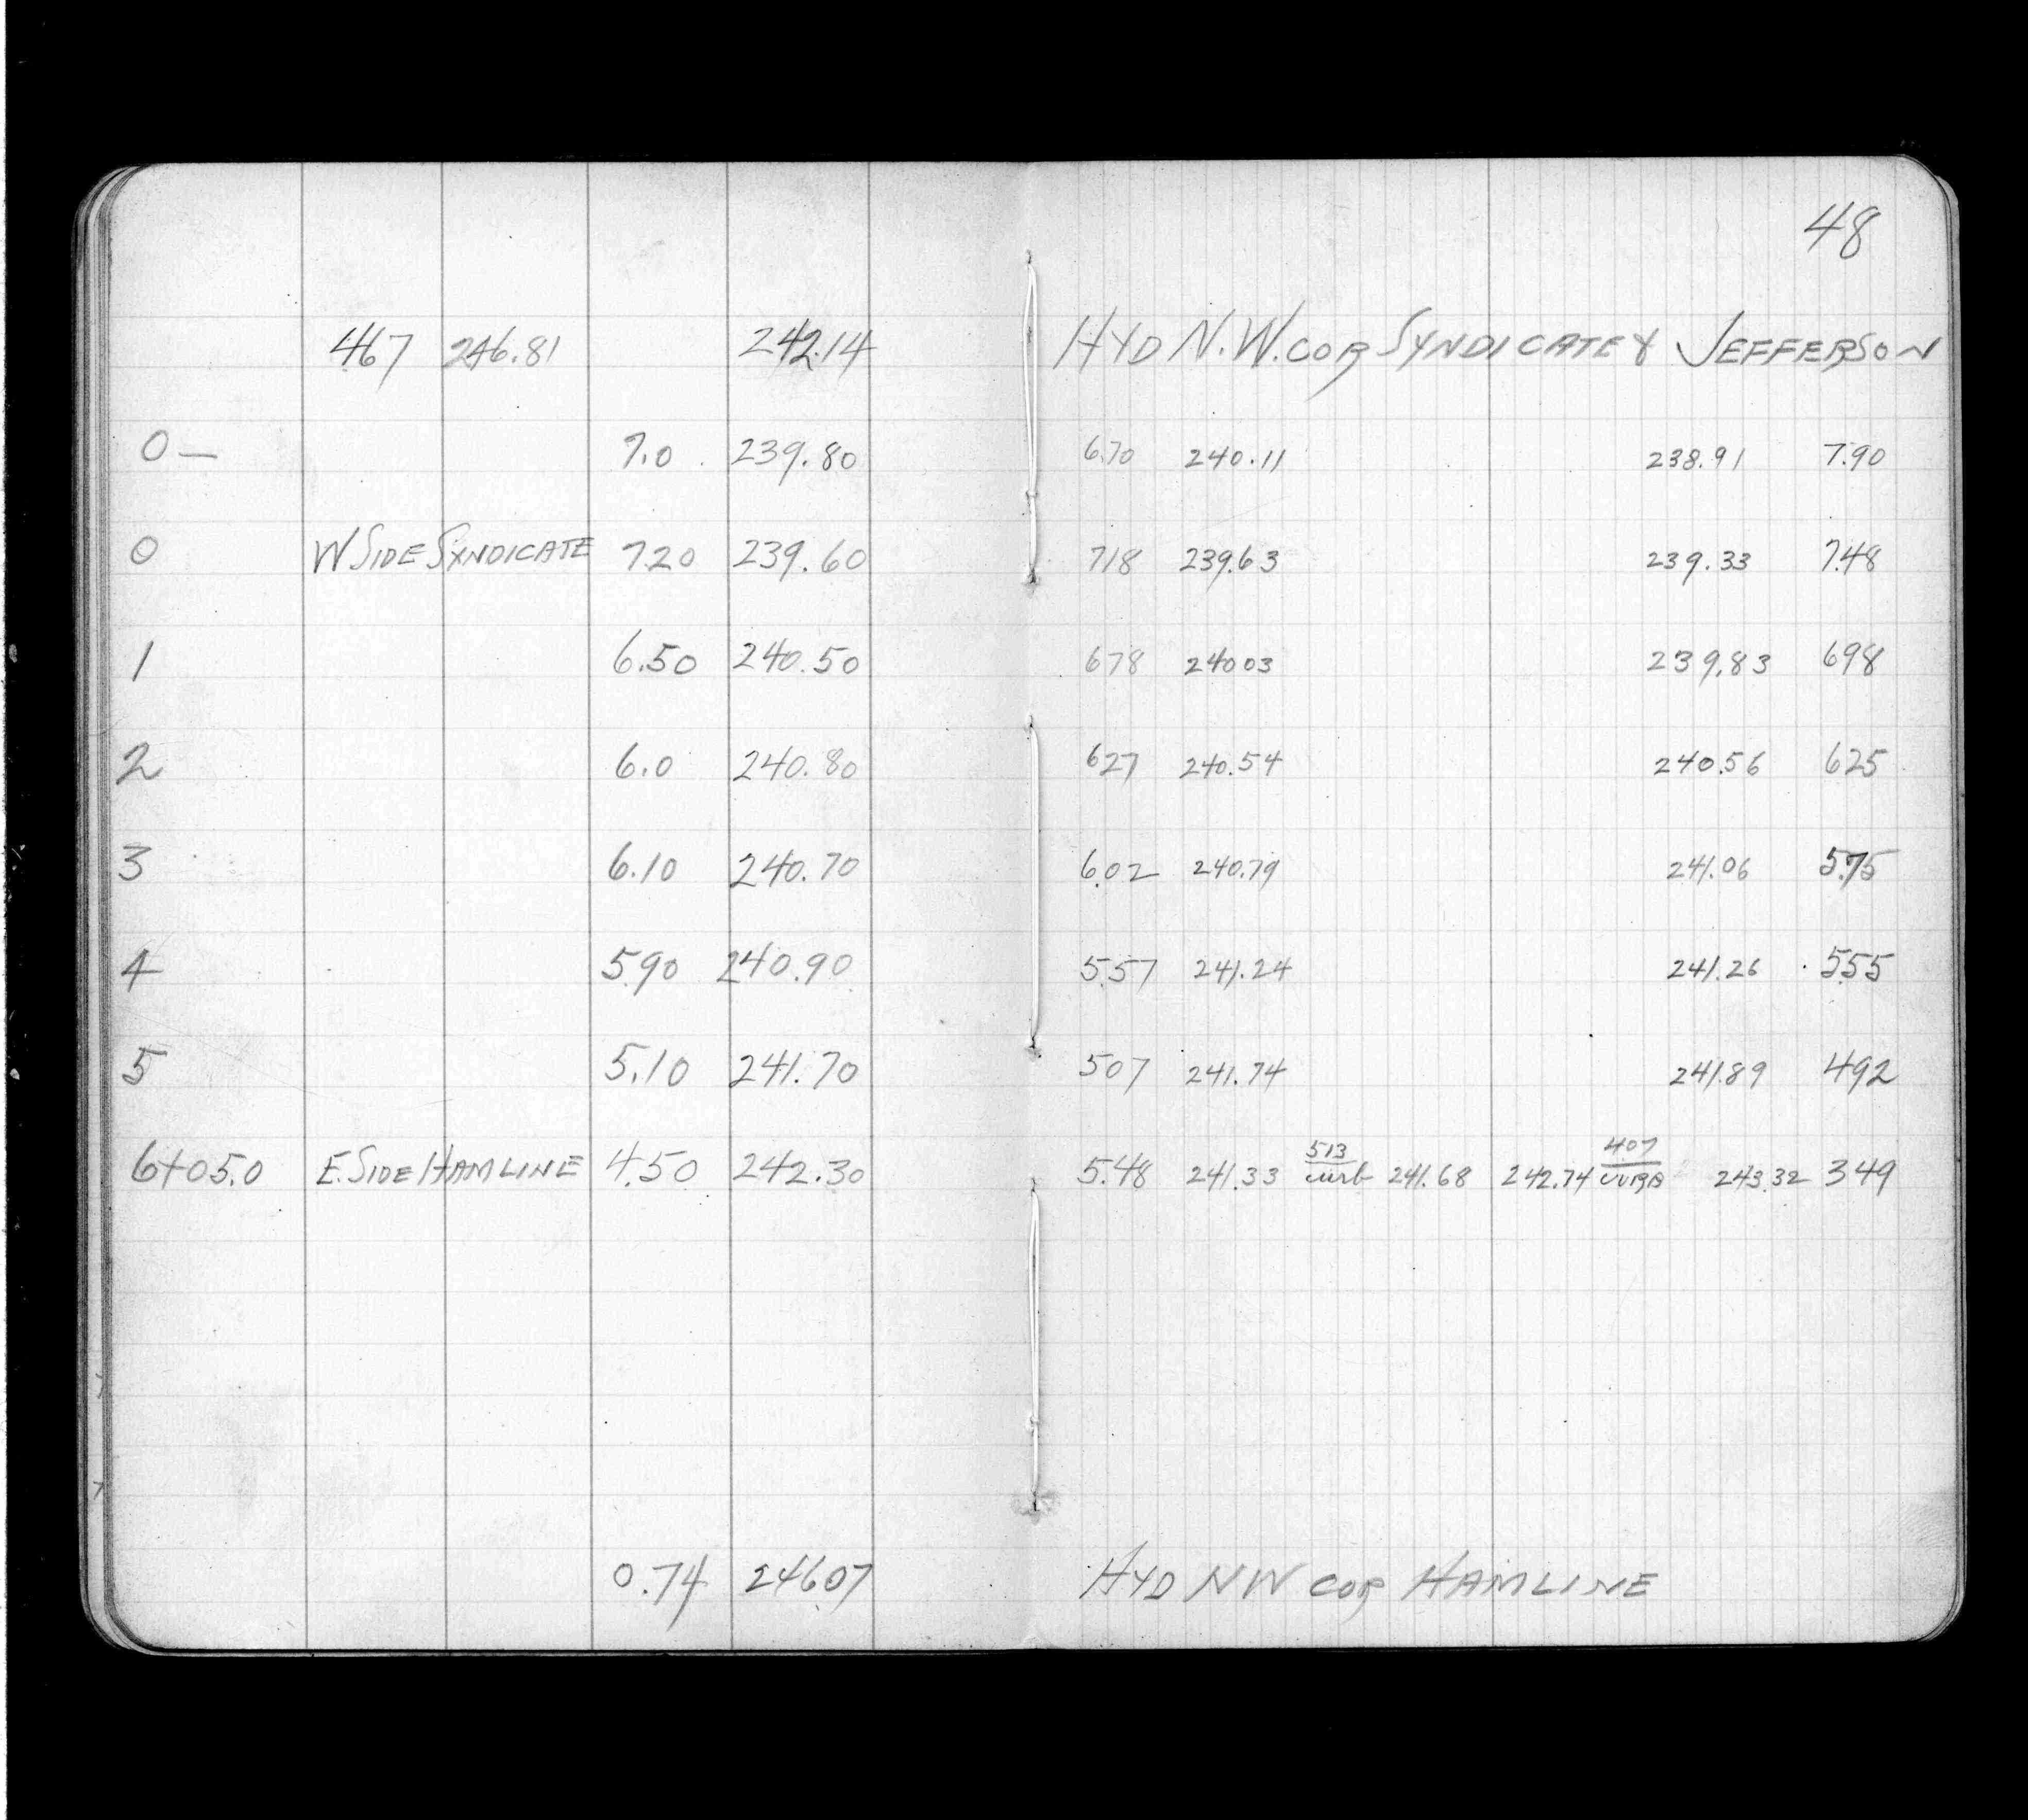 48
467 246.81 242.14 HYD N.W. COR SYNDICATE & JEFFERSON
0— 7.0 239.80 6.70 240.11 238.91 7.90
0 W SIDE SYNDICATE 7.20 239.60 718 239.63 239.33 7.48
1 6.50 240.50 678 240 03 239.83 698
2 6.0 240.80 627 240.54 240.56 625
3 6.10 240.70 6.02 240.79 241.06 5.75
4 5.90 240.90 5.57 241.24 241.26 5.55
5 5.10 241.70 507 241.74 241.89 492
513 407
6+05.0 E. SIDE HAMLINE 4.50 242.30 5.48 241.33 curb 241.68 242.74 CURB 243.32 349
0.74 246.07 HYD NW COR HAMLINE